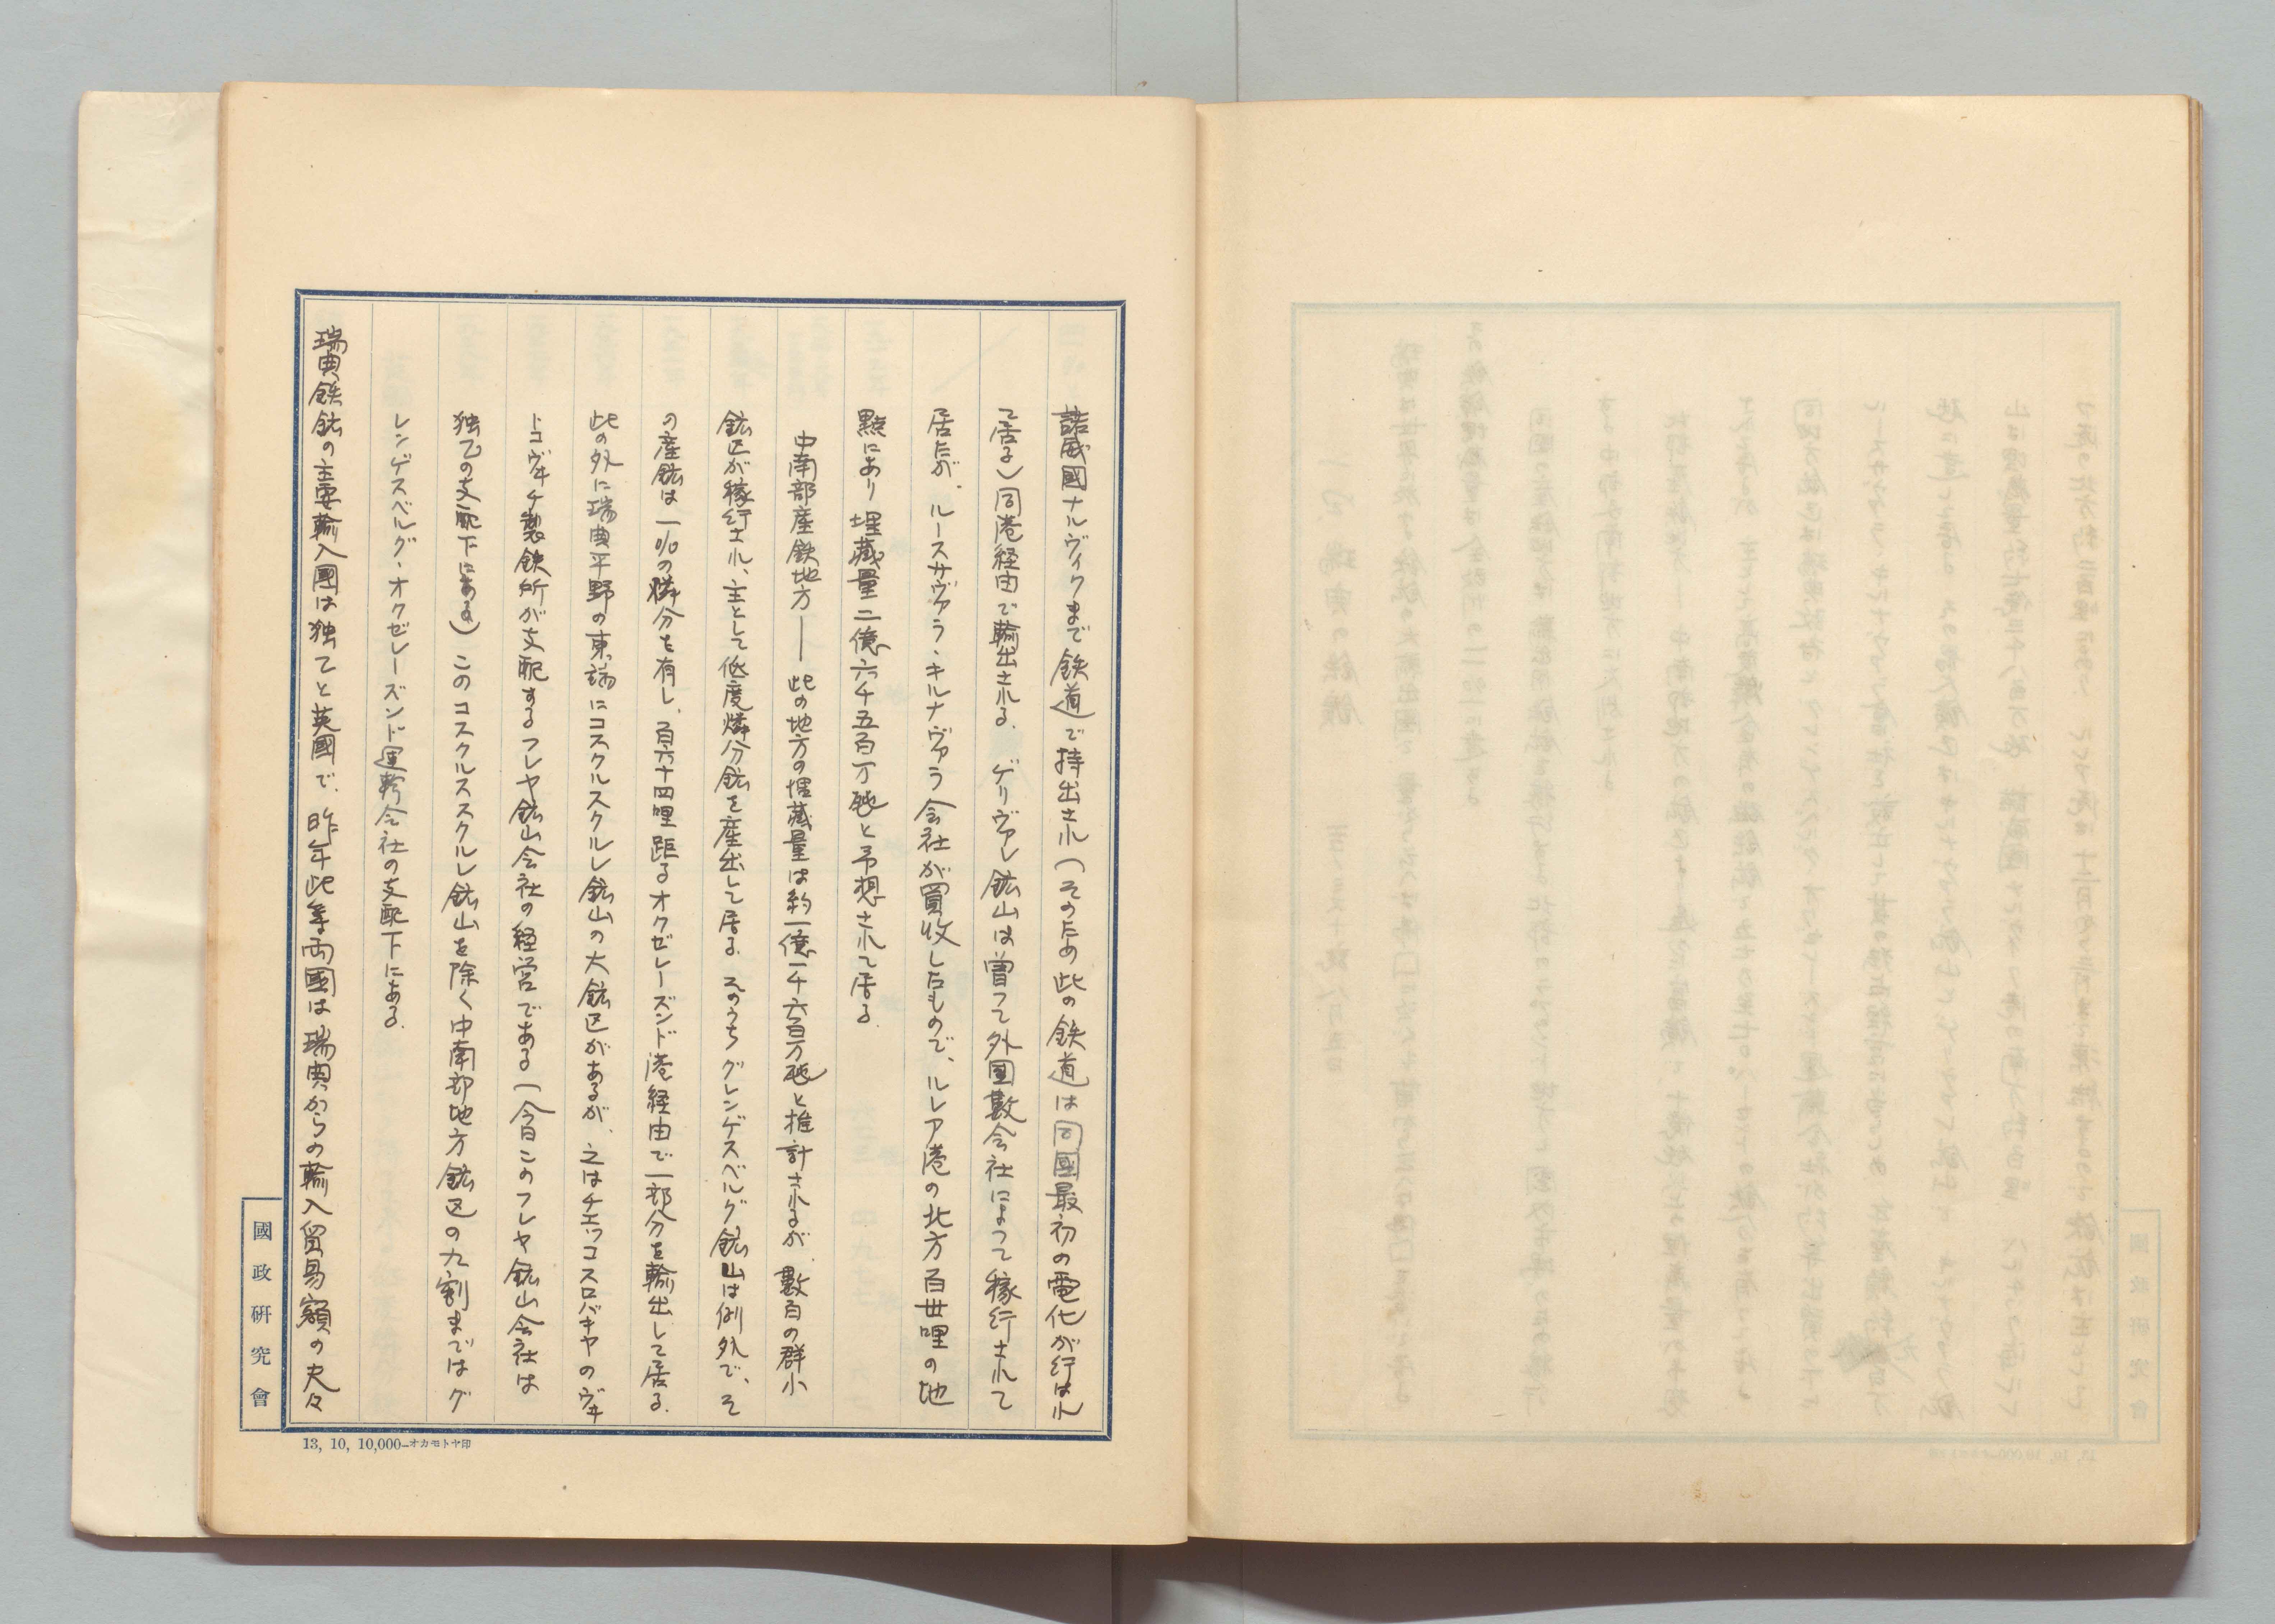 諾威國ナルヴィクまで鉄道で持出され(そのため此の鉄道は同國最初の電化が行はれ
て居る)同港経由で輸出される、ゲリヴァレ鉱山は曽つて外国数会社によつて稼行されて
居たが、ルースサヴァラ・キルナヴァラ会社が買收したもので、ルレア港の北方百丗哩の地
點にあり埋蔵量二億六千五百万瓲と予想されて居る、
中南部産鉄地方――此の地方の埋蔵量は約一億一千六百万瓲と推計されるが、數百の群小
鉱区が稼行され、主として低度燐分鉱を産出して居る、そのうちグレンゲスベルグ鉱山は例外で、そ
の産鉱は一%の燐分を有し、百六十四哩距るオクゼレーズンド港経由で一部分を輸出して居る、
此の外に瑞典平野の東端にコスクルスクルレ鉱山の大鉱区があるが、之はチエッコスロバキヤのヴヰ
トコヴヰチ製鉄所が支配するフレヤ鉱山会社の経営である(今日このフレヤ鉱山会社は
独乙の支配下にある)このコスクルススクルレ鉱山を除く中南部地方鉱区の九割まではグ
レンゲスベルグ・オクゼレーズンド運輸会社の支配下にある、
瑞典鉄鉱の主要輸入國は独乙と英國で、昨年此等両國は瑞典からの輸入貿易額の夫々
國政研究會
13, 10, 10,000―オカモトヤ印